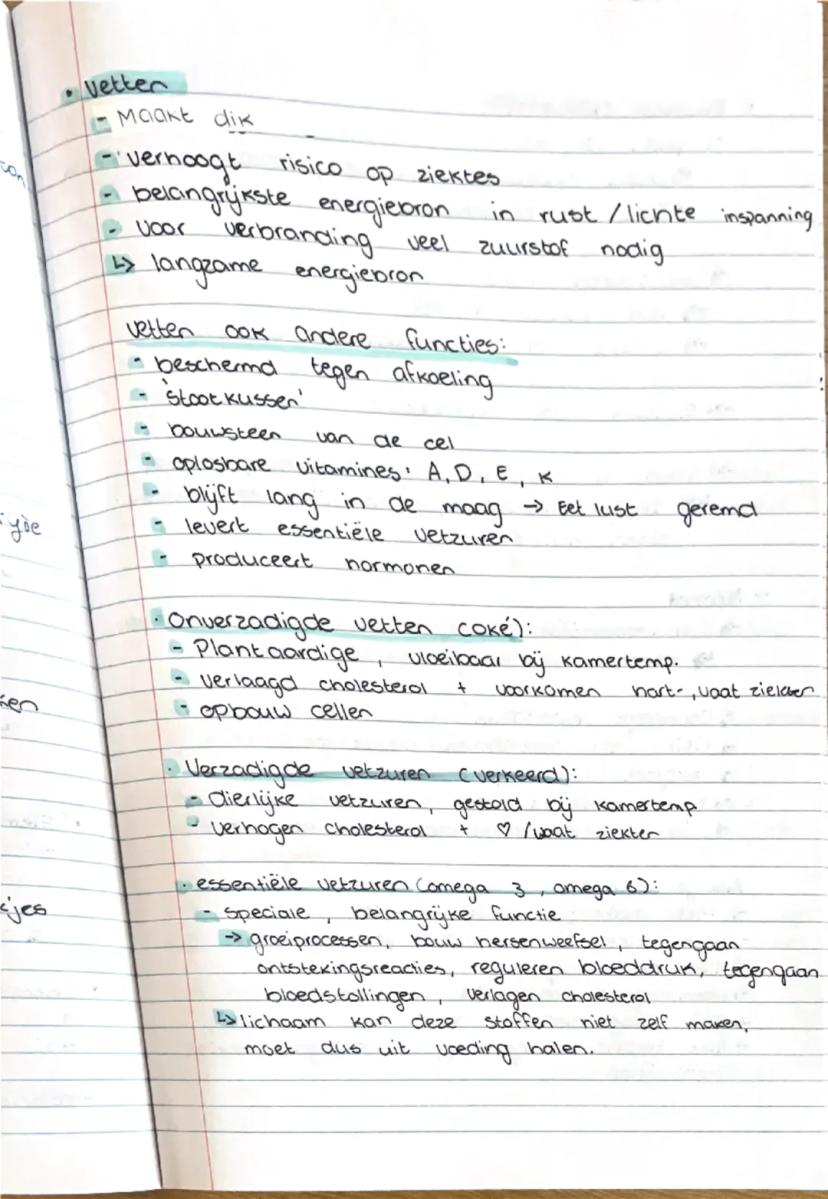 • vetten
- Maakt dik
- verhoogt risico op ziektes
- belangrijkste energiebron in rust / lichte inspanning
- voor verbranding veel zuurstof nodig
↳ langzame energiebron
vetten ook andere functies:
- beschermd tegen afkoeling
- 'stootkussen'
- bouwsteen van de cel
- oplosbare vitamines: A, D, E, K
- blijft lang in de maag → Eet lust geremd
- levert essentiële vetzuren
- produceert hormonen
• Onverzadigde vetten (oké):
- Plantaardige, vloeibaar bij kamertemp.
- verlaagd cholesterol + voorkomen hart-, vaat ziekten
- opbouw cellen
• Verzadigde vetzuren (verkeerd):
- Dierlijke vetzuren, gestold bij kamertemp
- verhogen cholesterol + ♡ / vaat ziekten
• essentiële vetzuren (omega 3, omega 6):
- speciale, belangrijke functie
→ groeiprocessen, bouw hersenweefsel, tegengaan
ontstekingsreacties, reguleren bloeddruk, tegengaan
bloedstollingen, verlagen cholesterol
↳ lichaam kan deze stoffen niet zelf maken,
moet dus uit voeding halen.
con
ijde
ken
kjes